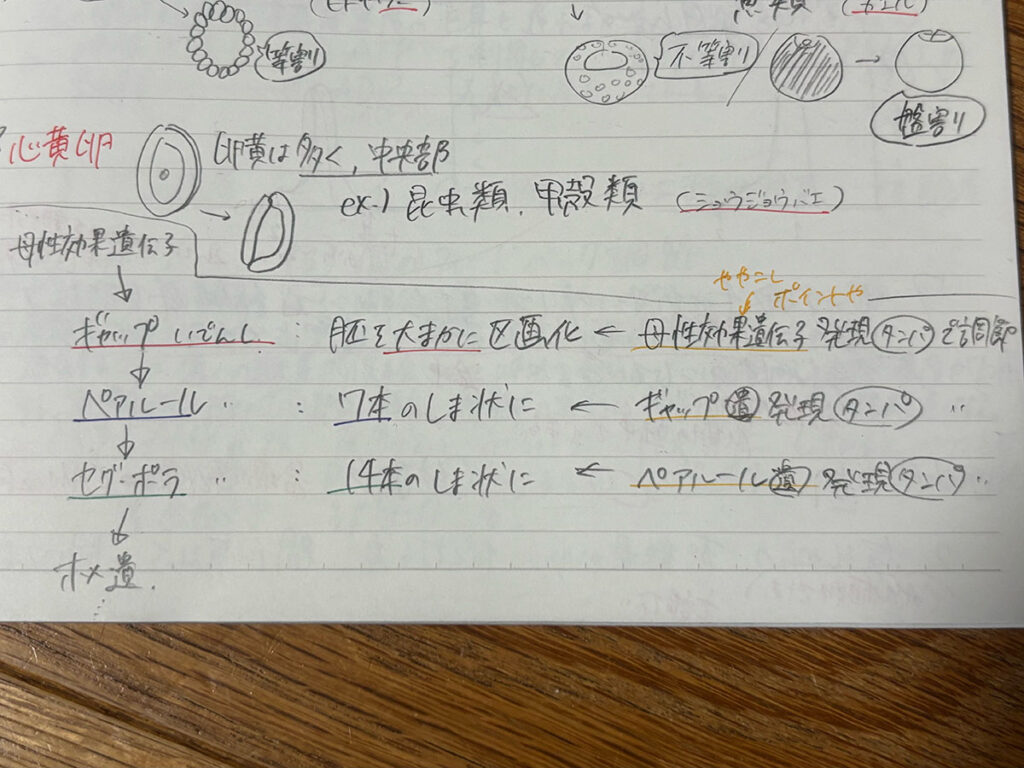 等割
不等割
盤割
心黄卵
卵黄は多く、中央部
ex.) 昆虫類、甲殻類 (ショウジョウバエ)
母性効果遺伝子
↓
ややこし
ポイントや
ギャップいでんし : 胚を大まかに区画化 ← 母性効果遺伝子発現タンパで調節
↓
ペアルール 〃 : 7本のしま状に ← ギャップ遺発現タンパ 〃
↓
セグ・ポラ 〃 : 14本のしま状に ← ペアルール遺発現タンパ 〃
↓
ホメ遺.